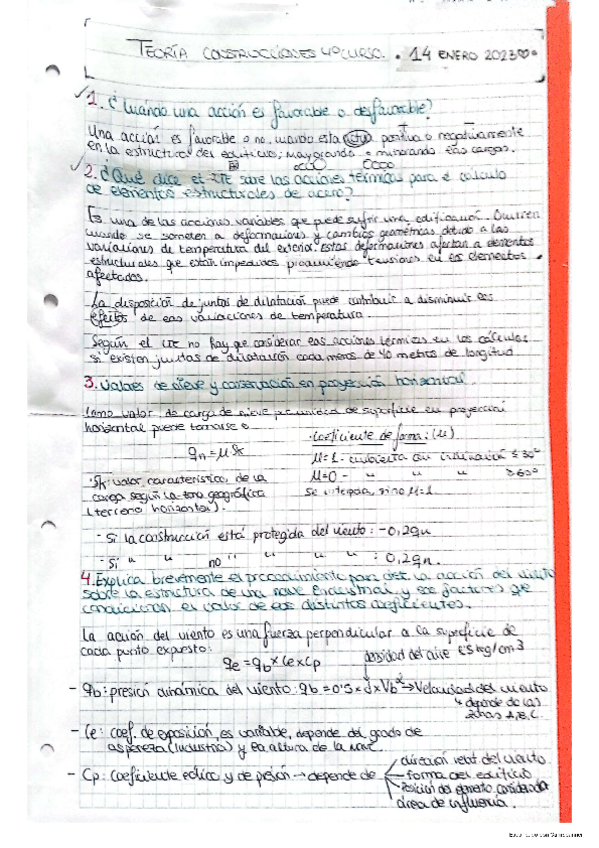 TEORÍA CONSTRUCCIONES 4º CURSO. • 14 ENERO 2023
1. ¿Cuándo una acción es favorable o desfavorable?
Una acción es favorable o no, cuando esta actúa positiva o negativamente
en la estructura del edificio, mayorando o minorando las cargas.
2. ¿Qué dice el CTE sobre las acciones térmicas para el cálculo
de elementos estructurales de acero?
Es una de las acciones variables que puede sufrir una edificación. Ocurren
cuando se someten a deformaciones y cambios geométricos debido a las
variaciones de temperatura del exterior. Estas deformaciones afectan a elementos
estructurales que están impedidos produciendo tensiones en los elementos
afectados.
La disposición de juntas de dilatación puede contribuir a disminuir los
efectos de las variaciones de temperatura.
Según el CTE no hay que considerar las acciones térmicas en los cálculos
si existen juntas de dilatación cada menos de 40 metros de longitud
3. Valores de nieve y conservación en proyección horizontal.
Como valor de carga de nieve por unidad de superficie en proyección
horizontal puede tomarse
qn = μ Sk
· Coeficiente de forma: (μ)
μ=1 - cubierta con inclinación ≤ 30º
μ=0 - " " " ≥ 60º
Se interpola, si no μ=1.
· Sk: valor característico de la
carga según la zona geográfica
(terreno horizontal).
- Si la construcción está protegida del viento: -0,2qn
- Si " " no " " " " : 0,2qn.
4. Explica brevemente el procedimiento para det. la acción del viento
sobre la estructura de una nave industrial, y los factores que
condicionan el valor de los distintos coeficientes.
La acción del viento es una fuerza perpendicular a la superficie de
cada punto expuesto:
qe = qb × Ce × Cp
densidad del aire
- qb: presión dinámica del viento: qb = 0'5 × d × Vb² → Velocidad del viento
↳ depende de las
zonas A,B,C.
- Ce: coef. de exposición, es variable, depende del grado de
aspereza (industria) y la altura de la nave.
- Cp: Coeficiente eólico y de presión → depende de
dirección relat. del viento
forma del edificio
Posición del elemento considerado
área de influencia.